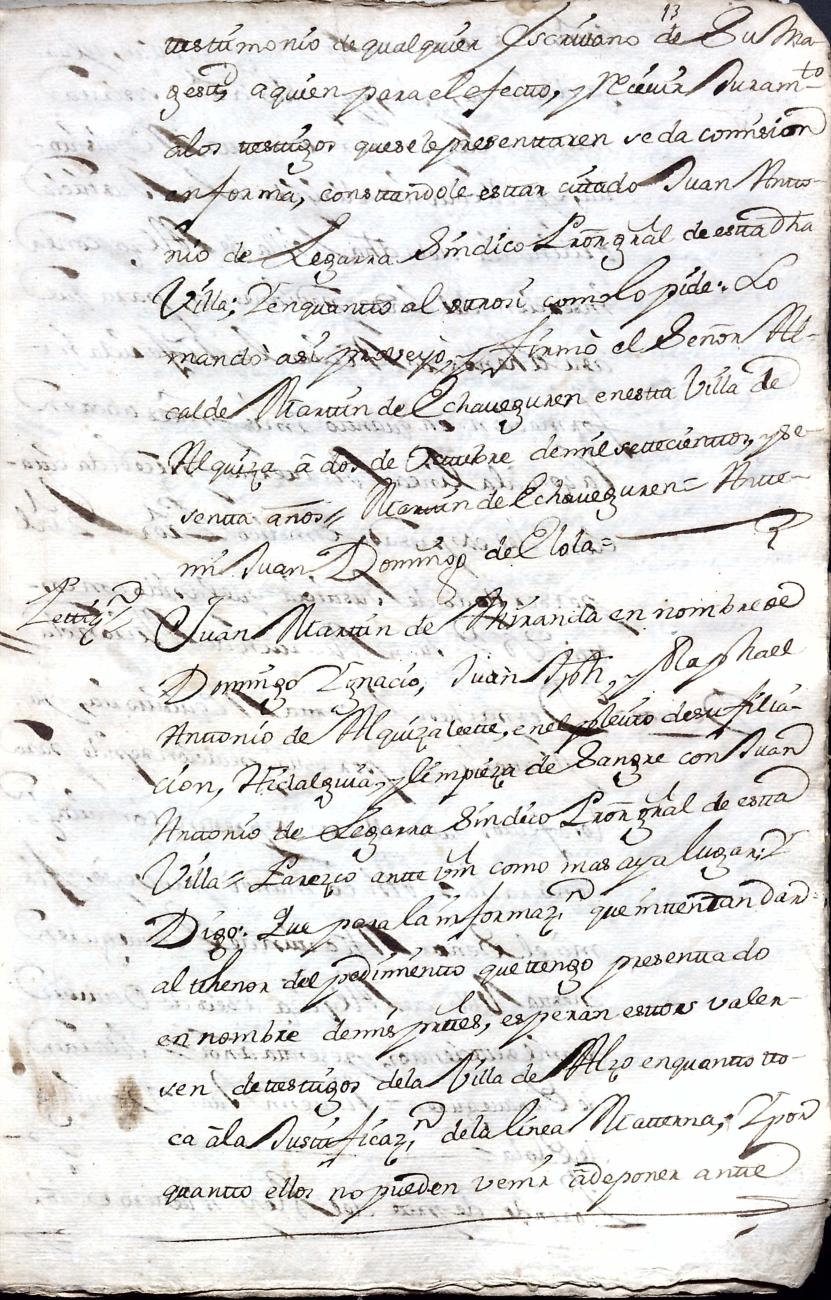 13
testimonio de qualquier Escrivano de Su Ma-
gestd, a quien para el efecto, y recivir Juramto
â los testigos que se le presenttaren se da comision
en forma, consttandole esttar cittado Juan Antto-
nio de Legarra Sindico Prôr grâl de estta dha
Villa; Y en quantto al ottrosi como lo pide: Lo
mando asi proveyò, y firmò el Señor Al-
calde Marttin de Echaveguren en estta Villa de
Alquiza â dos de Octtubre de mil settecienttos, y se-
sentta años = Marttin de Echaveguren = Antte
mi Juan Domingo de Elola =
Pettizn
Juan Marttin de Miranda en nombre de
Domingo Ygnacio, Juan Jph, y Raphael
Anttonio de Alquizalette, en el pleitto de su filia-
cion, Hidalguia, y limpieza de Sangre con Juan
Anttonio de Legarra Sindico Prôr grâl de estta
Villa = Parezco antte vm como mas aya lugar; Y
Digo: Que para la informazn que inttentan dar
al thenor del pedimentto que ttengo presenttado
en nombre de mis prttes, esperan esttos valer-
sen de testtigos de la Villa de Alzo en quantto tto-
ca â la Justtificazn de la linea Matterna; Y por
quantto ellos no pueden venir â deponer antte